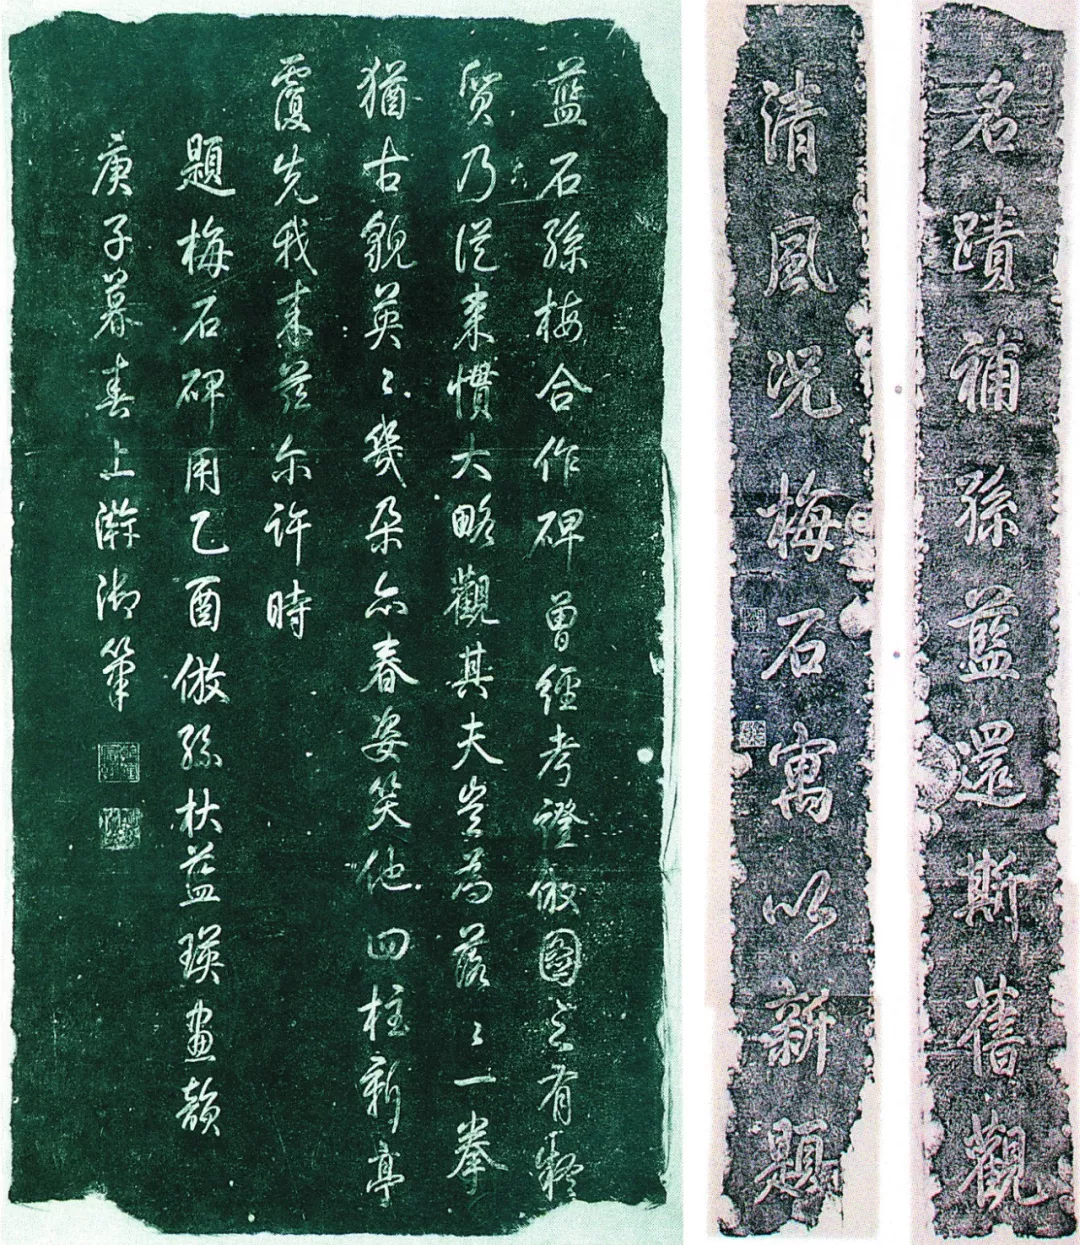 名蹟補孫藍還斯舊觀
清風況梅石寓以新題
藍石孫梅合作碑曾經考證倣圖之有疑
質乃從來慣大略觀其夫豈為落〻一拳
猶古貌英〻幾朵亦春姿笑他四柱新亭
覆先我來茲尔許時
題梅石碑用乙酉倣孫杕藍瑛畫韻
庚子暮春上澣御筆